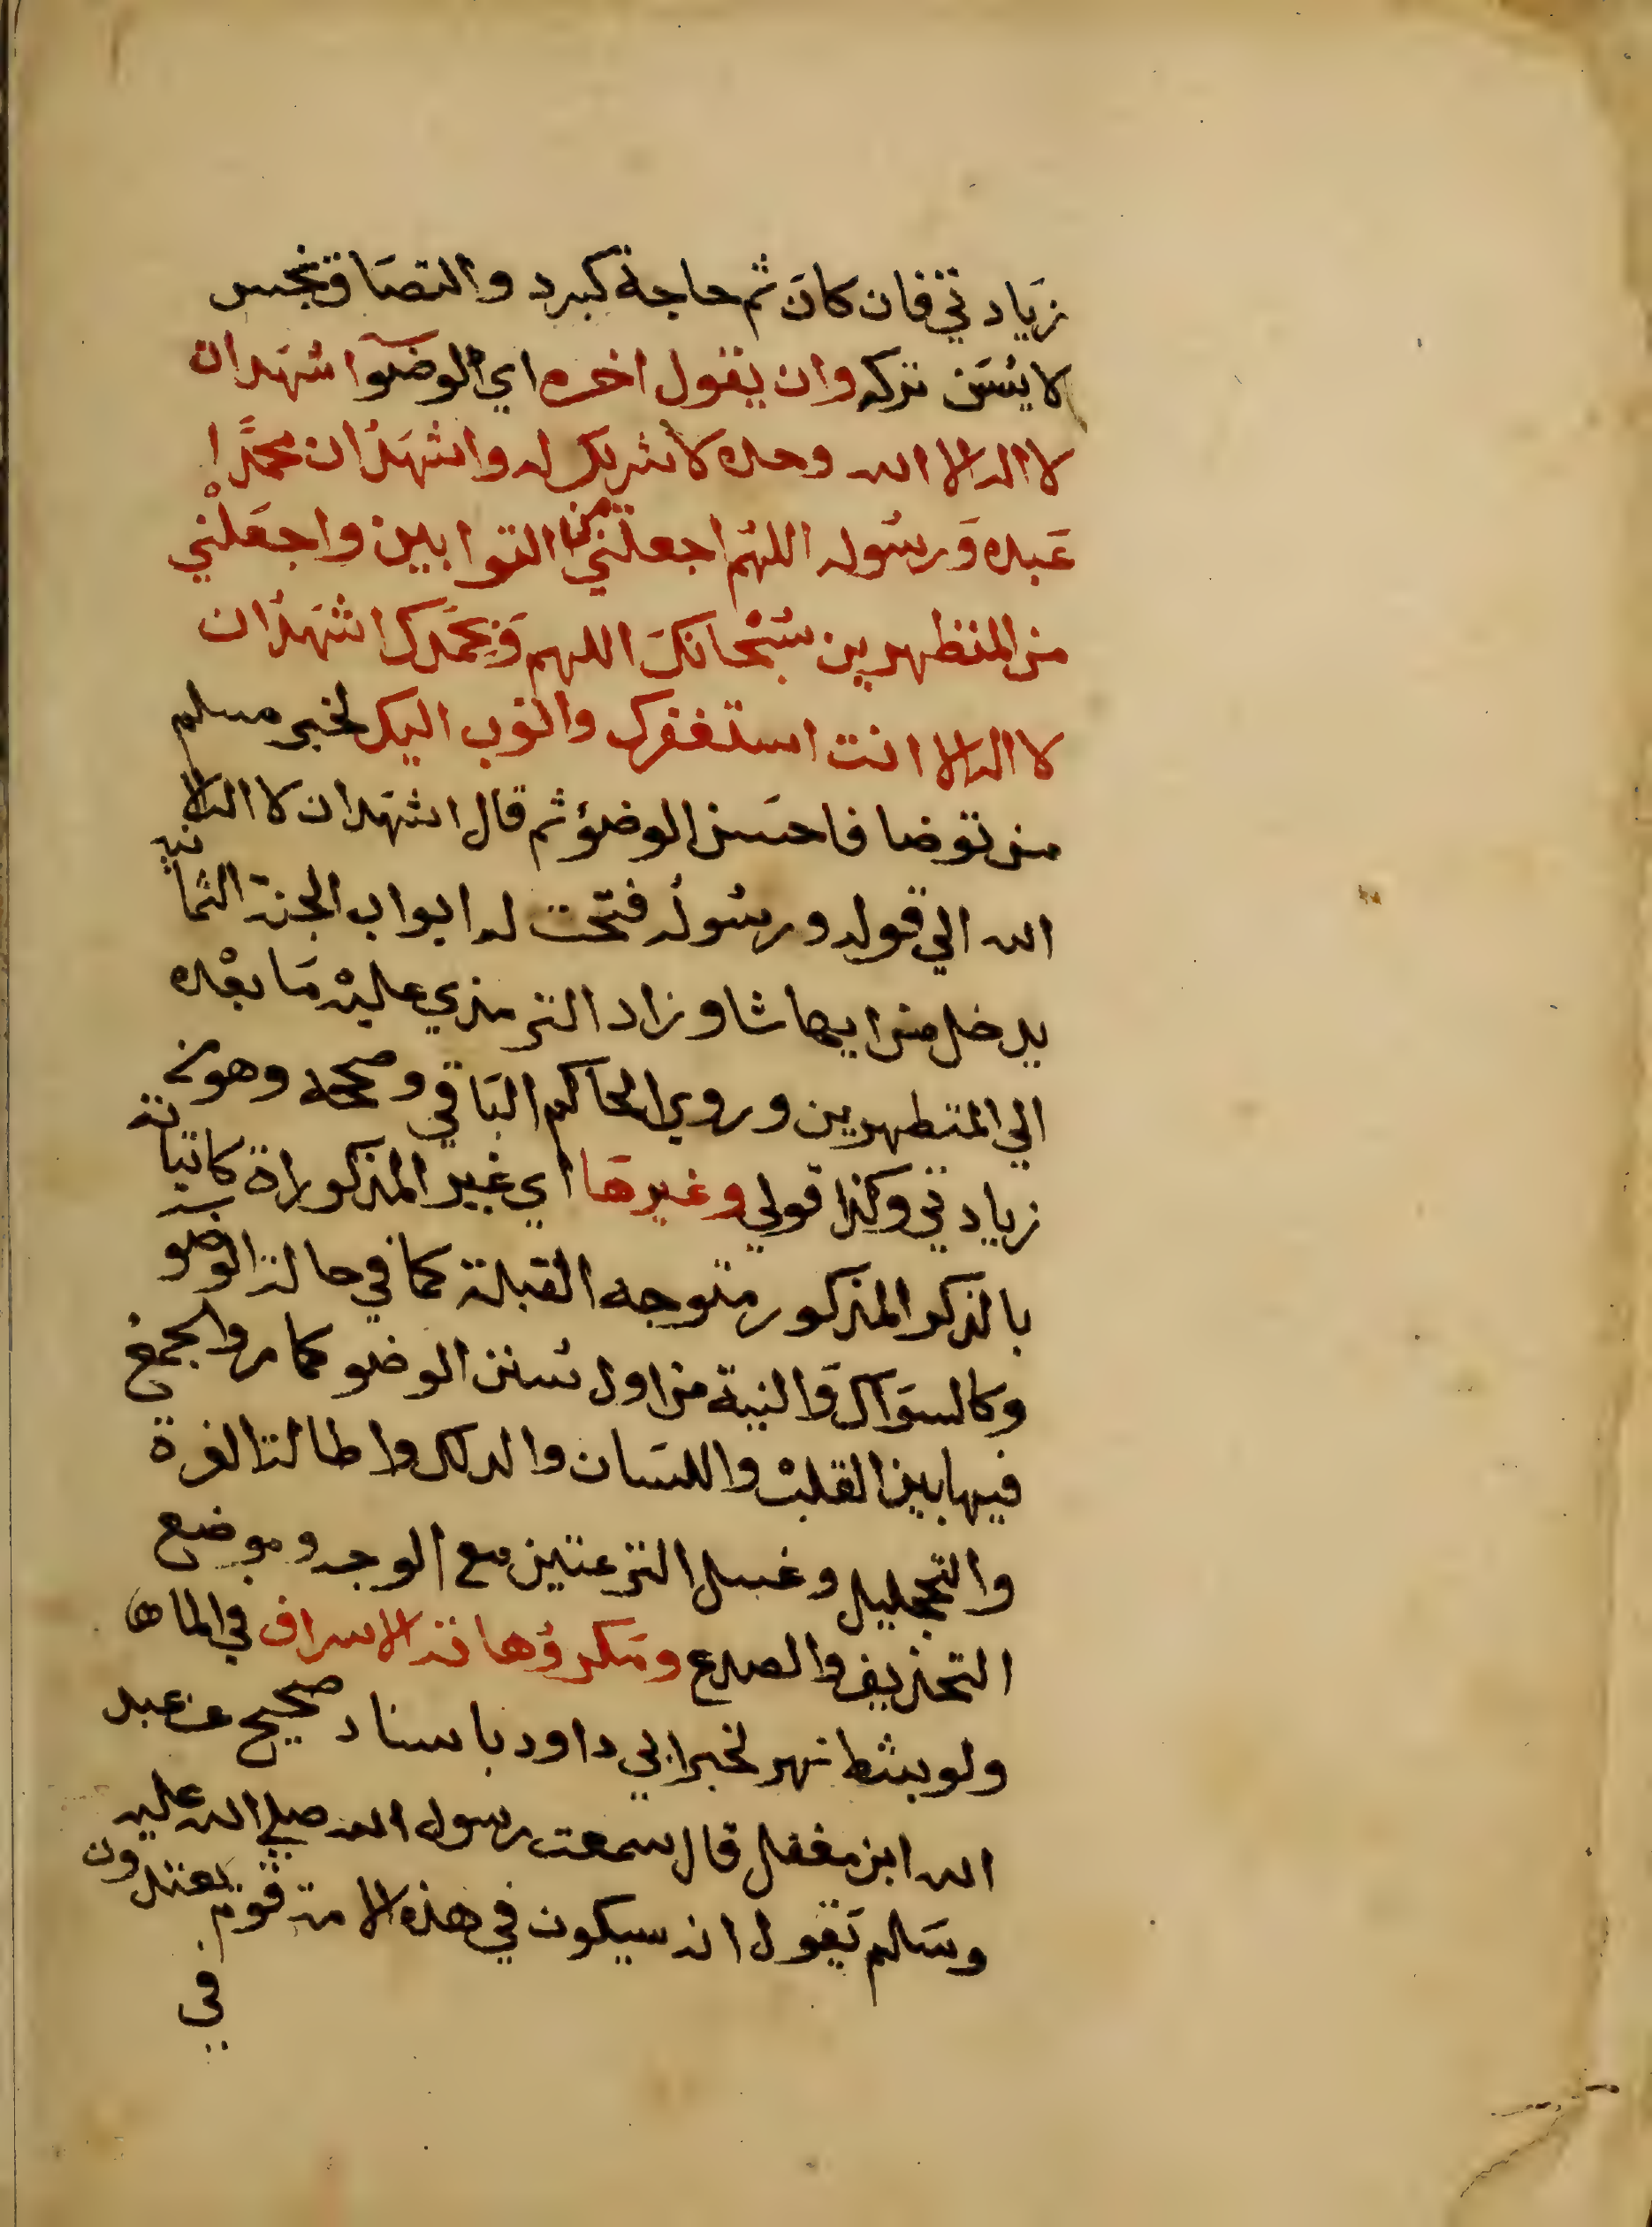 زيادتي فان كان ثم حاجة كبرد والتصاق بنجس
لا يسن تركه وان يقول اخره اي الوضوا شهد ان
لا اله الا الله وحده لا شريك له واشهد ان محمدا
عبده ورسوله اللهم اجعلني من التوابين واجعلني
من المتطهرين سبحانك اللهم وبحمدك اشهد ان
لا اله الا انت استغفرك واتوب اليك لخبر مسلم
من توضا فاحسن الوضوء ثم قال اشهد ان لا اله الا
الله الي قوله ورسوله فتحت له ابواب الجنة الثمانيه
يدخل من ايها شا وزاد الترمذي عليه ما بعده
الي المتطهرين وروي الحاكم الباقي وصححه وهو من
زيادتي وكذا قولي وغيرها اي غير المذكوراة كاتيانه
بالذكر المذكور متوجه القبلة كما في حالة الوضو
وكالسواك والنية من اول سنن الوضو كما مر والجمع
فيها بين القلب واللسان والدلك واطالة الغرة
والتحجيل وغسل النزعتين مع الوجه وموضع
التحذيف والصدع ومكروهاته الاسراف في الما
ولو بشط نهر لخبر ابي داود باسناد صحيح عن عبد
الله ابن مغفل قال سمعت رسول الله صلي الله عليه
وسلم يقول انه سيكون في هذه الامة قوم يعتدون
في